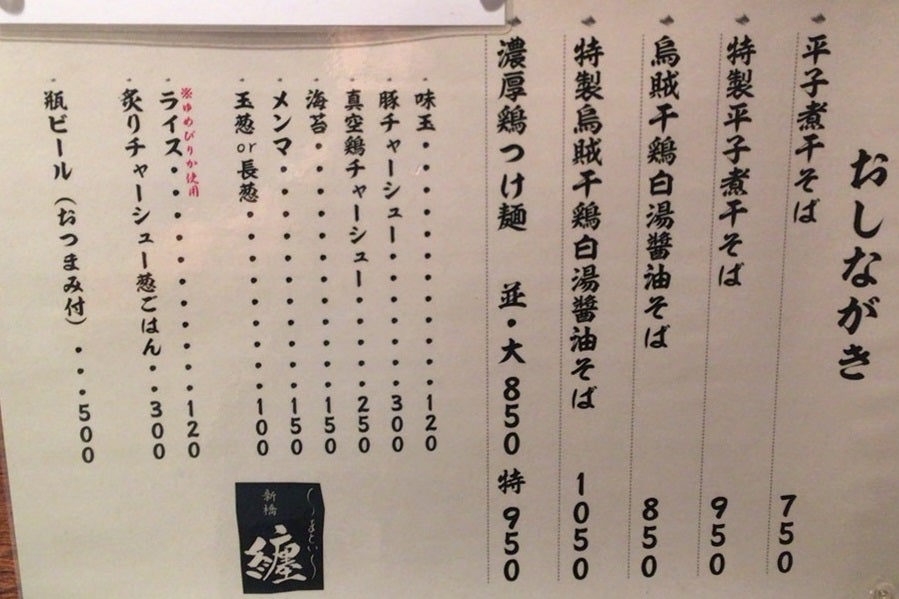 おしながき
平子煮干そば 750
特製平子煮干そば 950
烏賊干鶏白湯醬油そば 850
特製烏賊干鶏白湯醬油そば 1050
濃厚鶏つけ麺 並・大 850 特 950
味玉・・・・・・・・・・・120
豚チャーシュー・・・・・・300
真空鶏チャーシュー・・・・250
海苔・・・・・・・・・・・150
メンマ・・・・・・・・・・150
玉葱or長葱・・・・・・・・100
※ゆめぴりか使用
ライス・・・・・・・・・・120
炙りチャーシュー葱ごはん・・300
瓶ビール(おつまみ付)・・・500
新橋
纏
〜まとい〜